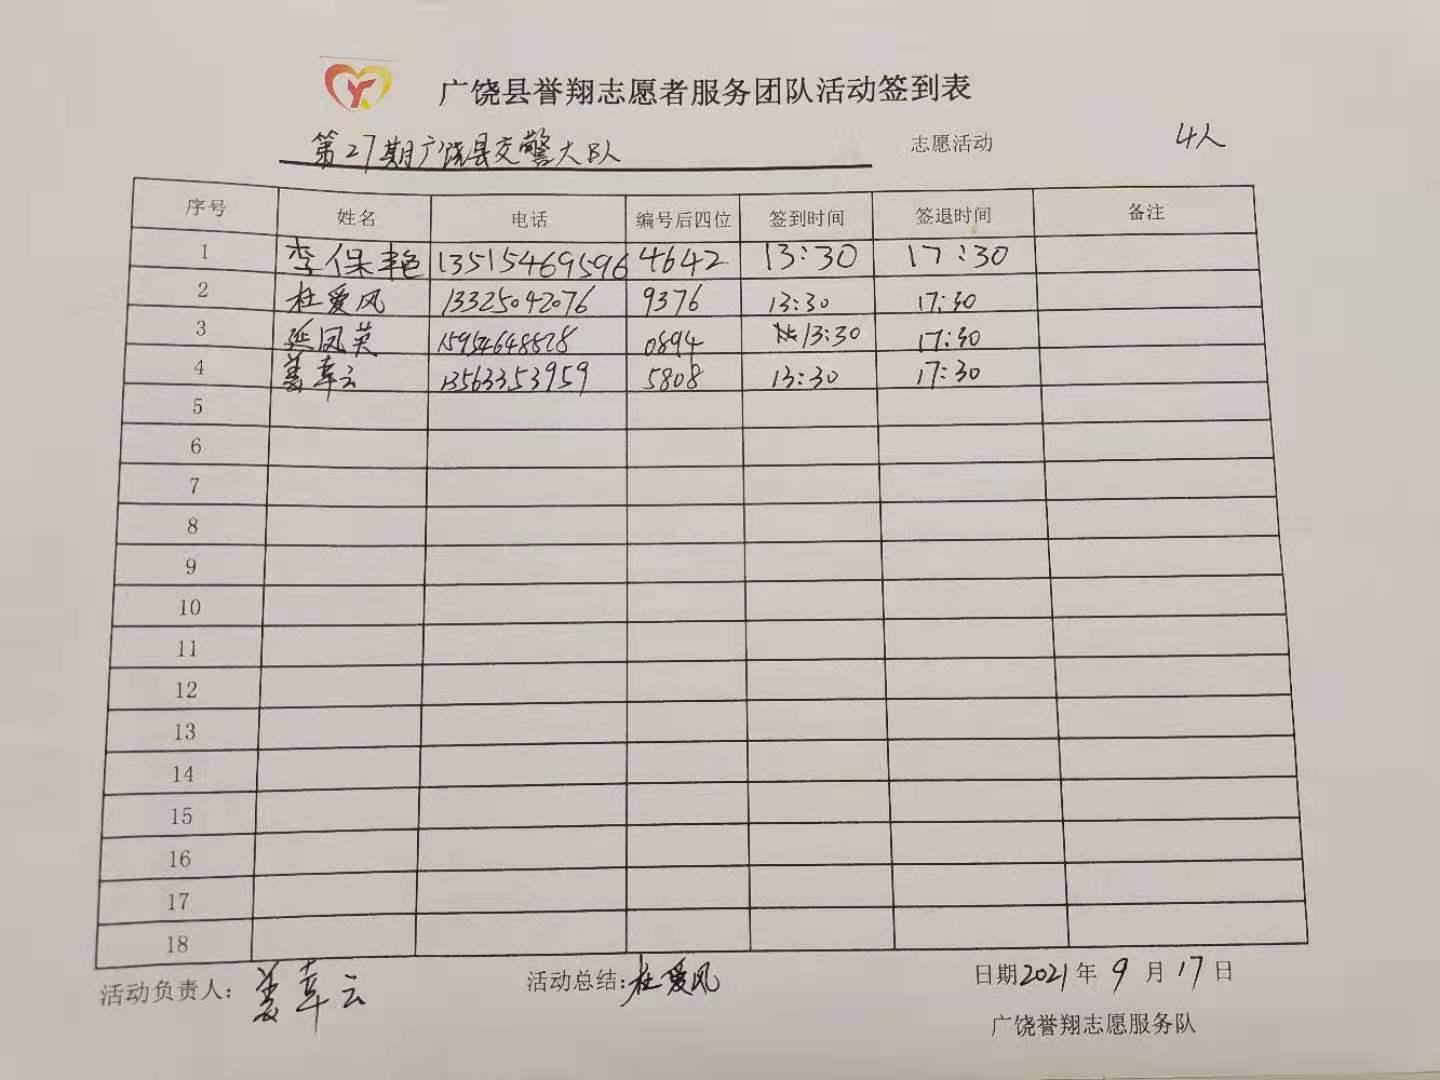 广饶县誉翔志愿者服务团队活动签到表
第27期广饶县交警大队 志愿活动 4人
序号 姓名 电话 编号后四位 签到时间 签退时间 备注
1 李保艳 13515469596 4642 13:30 17:30
2 杜爱风 13325042076 9376 13:30 17:30
3 延凤英 15954648528 0894 13:30 17:30
4 姜幸云 13563353959 5808 13:30 17:30
5
6
7
8
9
10
11
12
13
14
15
16
17
18
活动负责人: 姜幸云 活动总结: 杜爱风 日期2021年9月17日
广饶誉翔志愿服务队